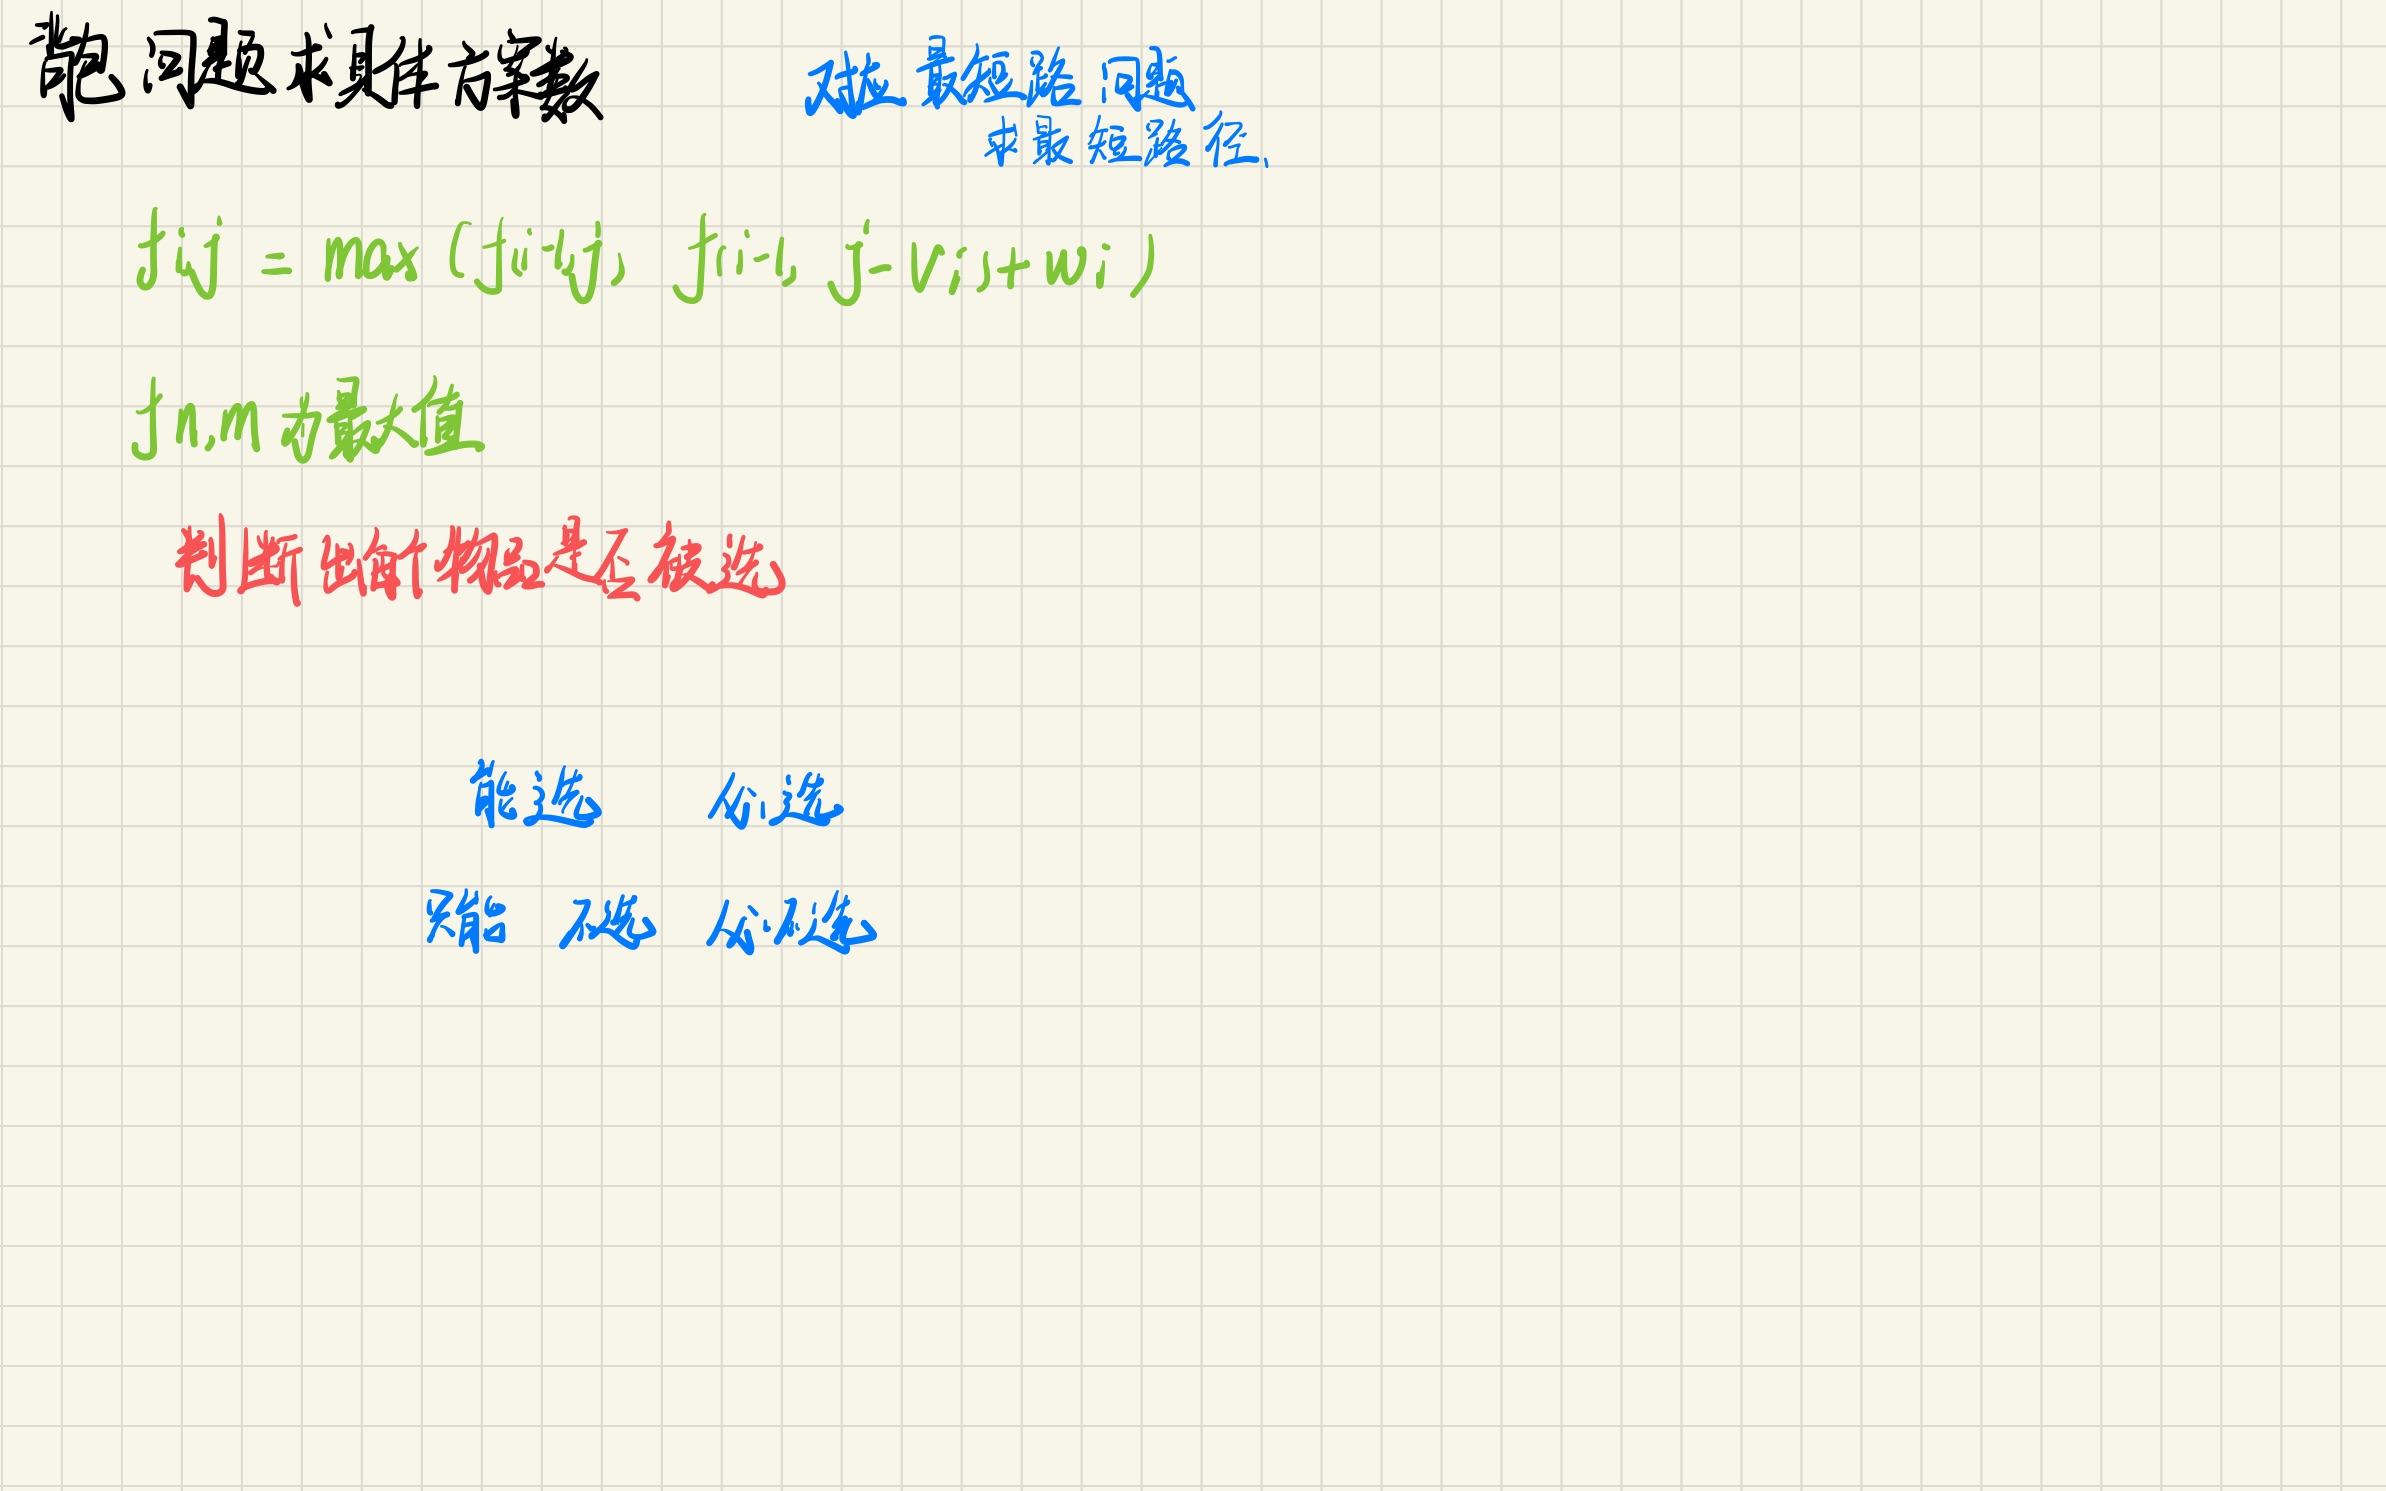 背包问题求具体方案数
对应最短路问题
求最短路径.
fi,j = max(fi-1,j, fi-1, j-vi,+wi)
fn,m为最大值
判断出每个物品是否被选
能选 必选
只能 不选 必不选